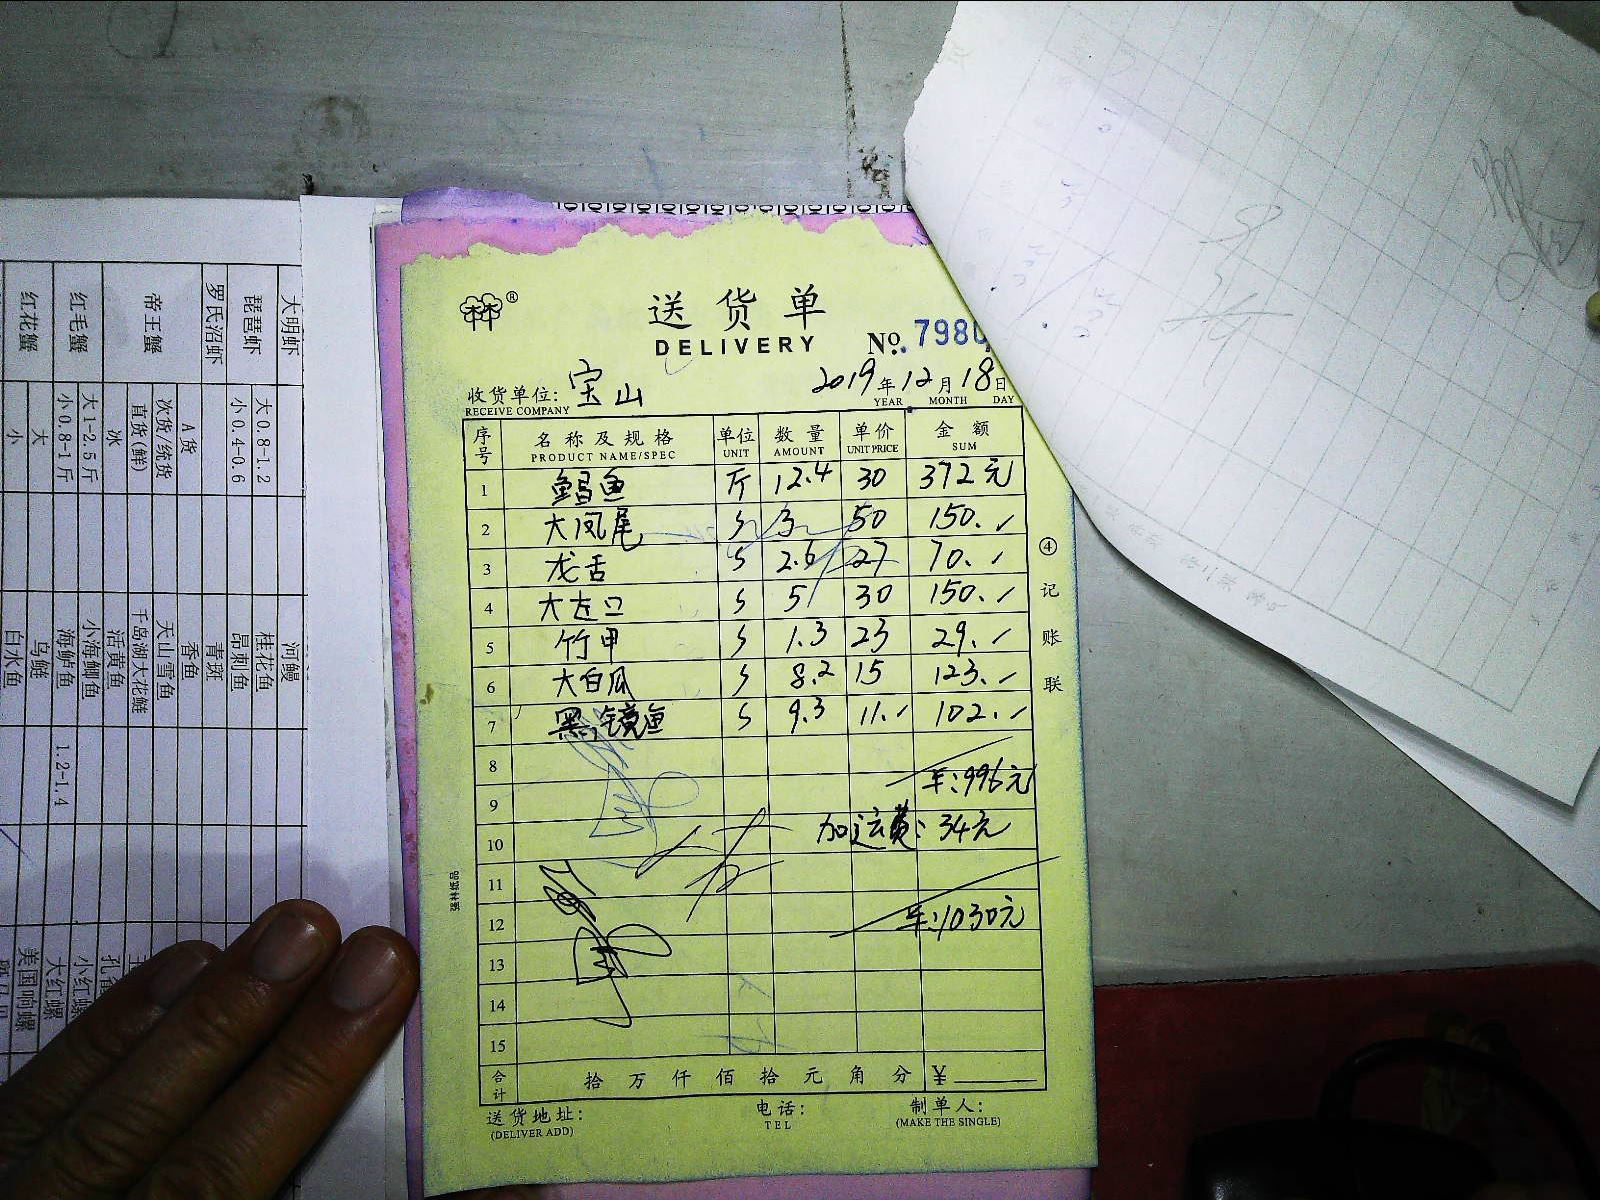 送货单
DELIVERY
No. 7980
收货单位: 宝山 2019年12月18日
RECEIVE COMPANY YEAR MONTH DAY
序号 名称及规格 单位 数量 单价 金额
PRODUCT NAME/SPEC UNIT AMOUNT UNIT PRICE SUM
1 鲳鱼 斤 12.4 30 372元
2 大凤尾 3 50 150.
3 龙舌 2.6 27 70.
4 大左口 5 30 150.
5 竹甲 1.3 23 29.
6 大白瓜 8.2 15 123.
7 黑镜鱼 9.3 11. 102.
8
996元
9
10 加运费: 34元
11
12 1030元
13
14
15
合计 拾万仟佰拾元角分 ¥
送货地址: 电话: 制单人:
(DELIVER ADD) TEL (MAKE THE SINGLE)
④记账联
大明虾
琵琶虾 大0.8-1.2
小0.4-0.6
罗氏沼虾
帝王蟹 A货
次货/统货
直货(鲜)
冰
红毛蟹 大1-2.5斤
小0.8-1斤
红花蟹 大
小
河鳗
桂花鱼
昂刺鱼
青斑
香鱼
天山雪鱼
千岛湖大花鲢
活黄鱼
小海鲫鱼
海鲈鱼 1.2-1.4
乌鲢
白水鱼
小红螺
大红螺
美国响螺